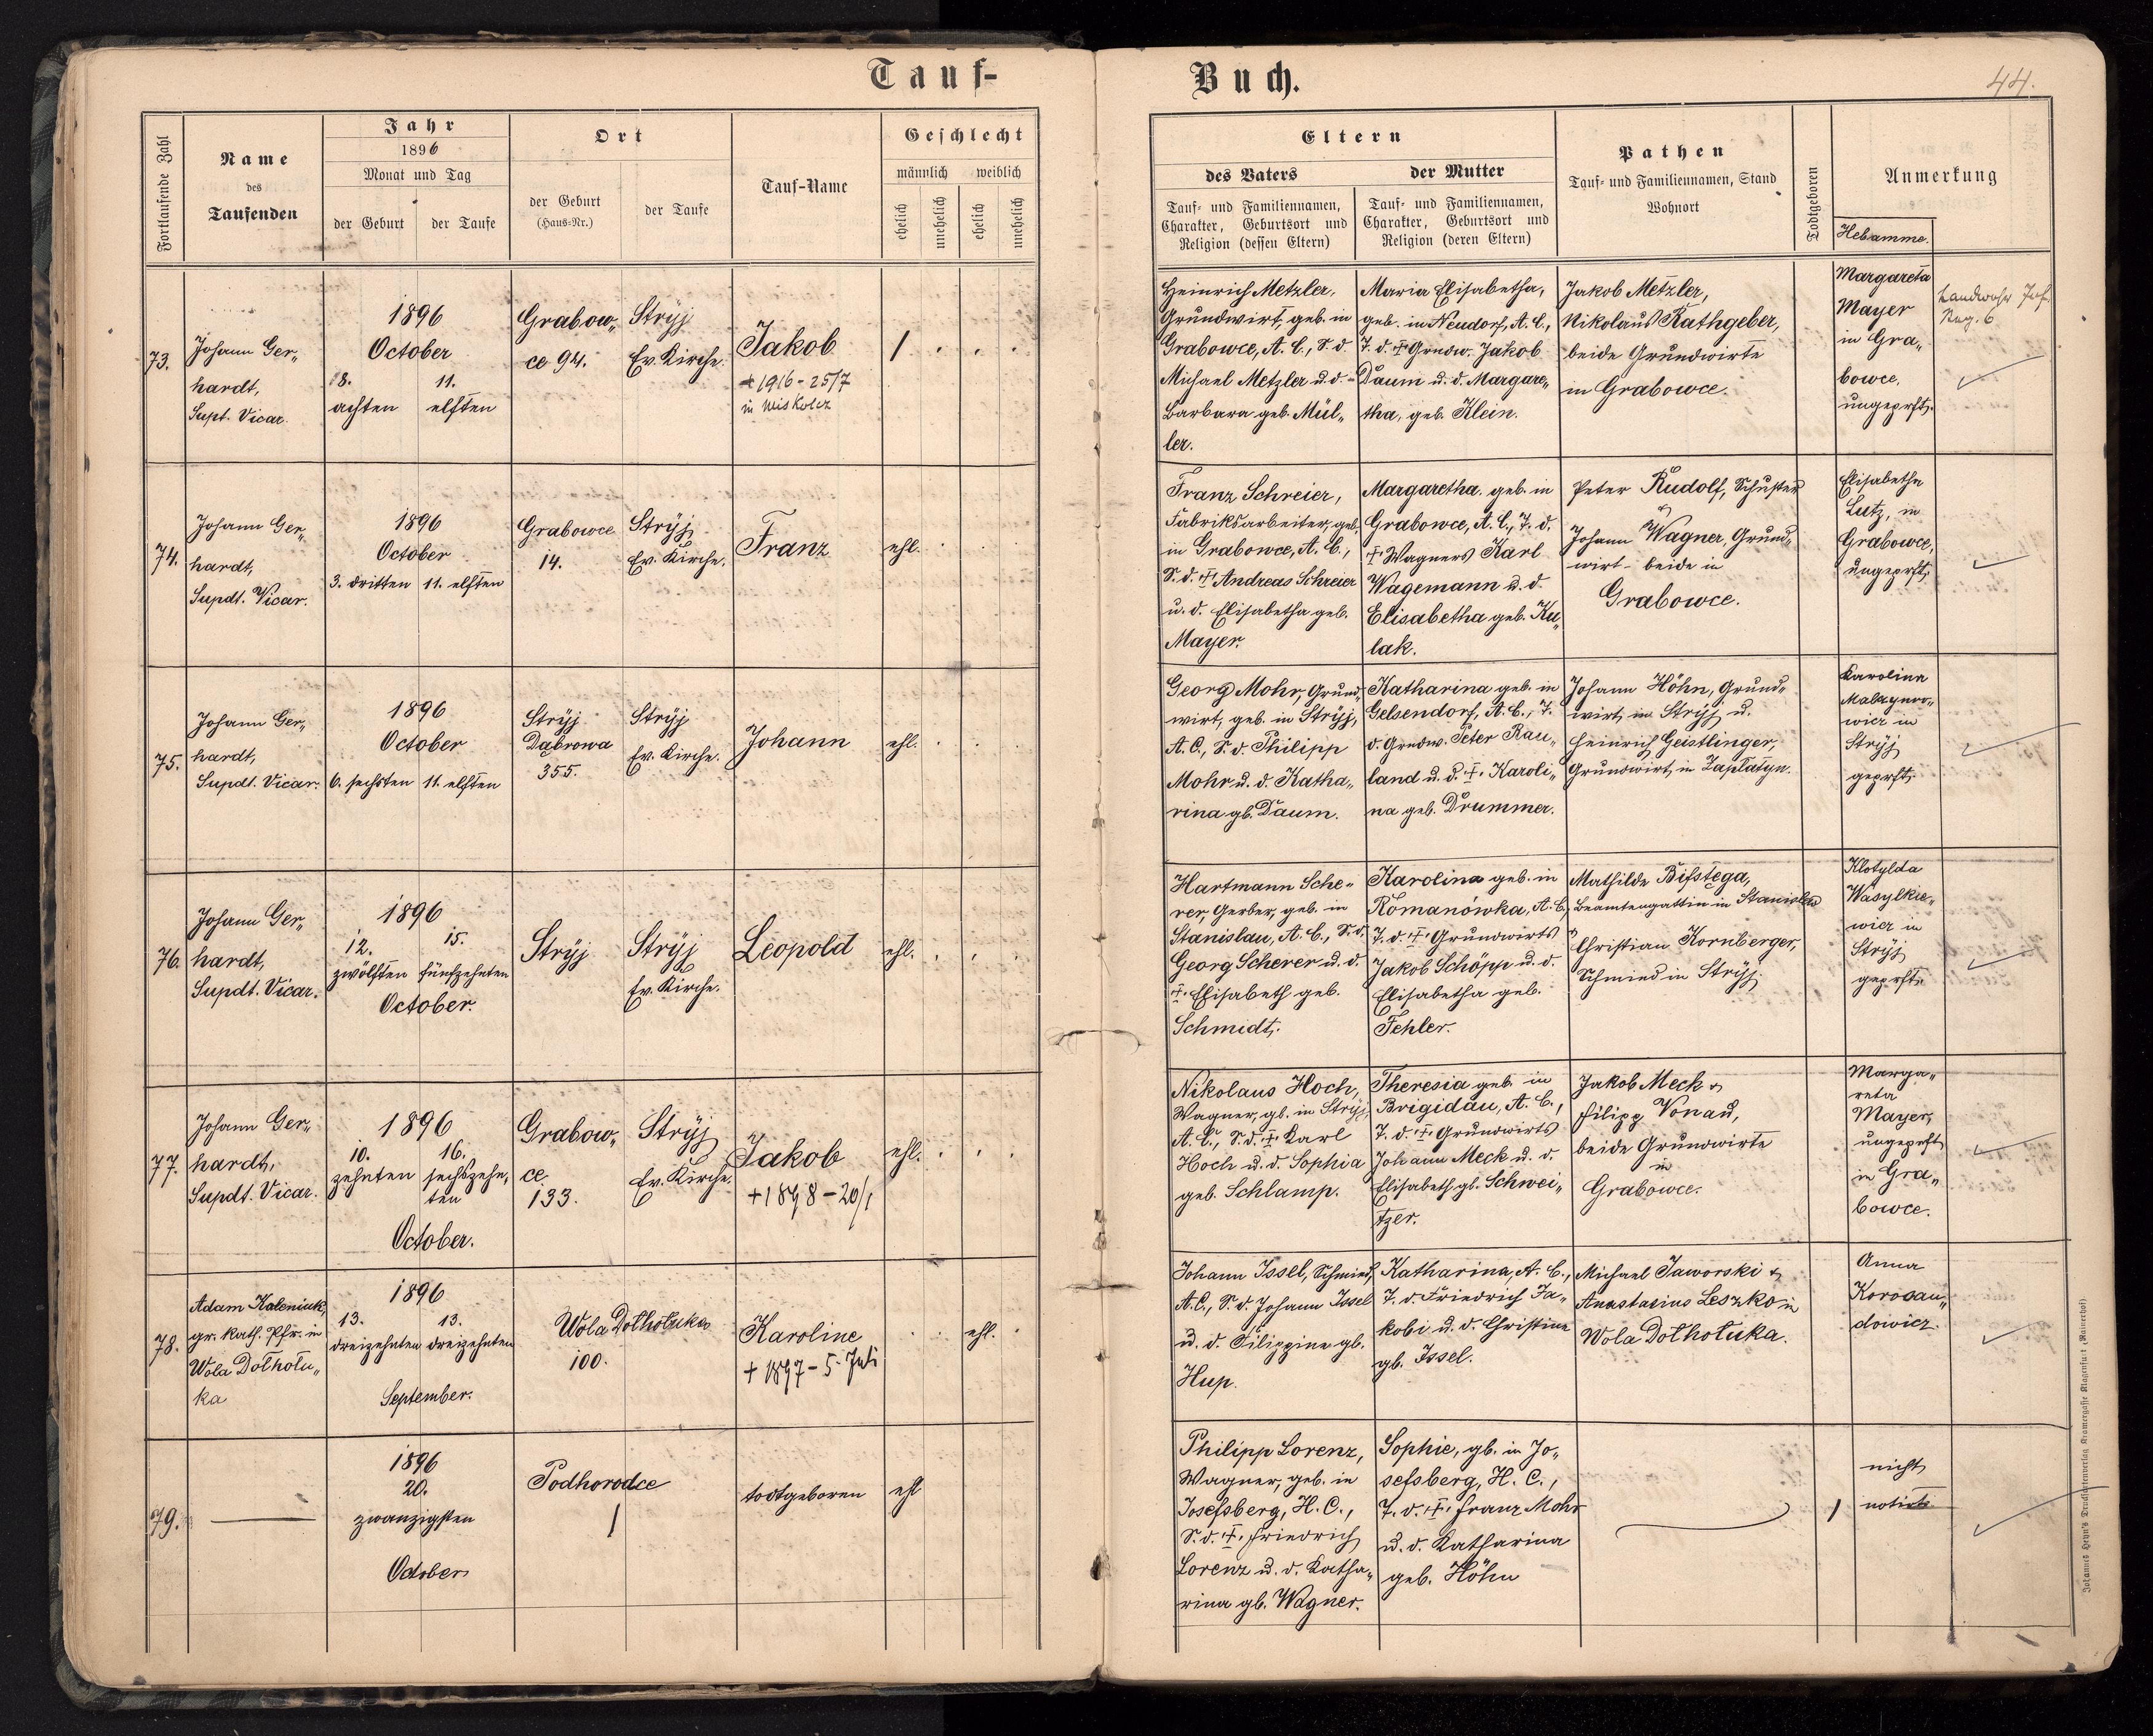 Tauf-
Buch.
44.
Fortlaufende Zahl
Name
des
Taufenden
Jahr
1896
Monat und Tag
der Geburt
der Taufe
Ort
der Geburt
(Haus-Nr.)
der Taufe
Tauf-Name
Geschlecht
männlich
weiblich
ehelich
unehelich
ehelich
unehelich
Eltern
des Vaters
Tauf- und Familiennamen,
Charakter, Geburtsort und
Religion (dessen Eltern)
der Mutter
Tauf- und Familiennamen,
Charakter, Geburtsort und
Religion (deren Eltern)
Pathen
Tauf- und Familiennamen, Stand
Wohnort
Todtgeboren
Anmerkung
Hebamme.
73.
Johann Ger„
hardt,
Supt. Vicar.
1896
October
8.
achten
11.
elften
Grabow„
ce 94.
Stryj
Ev. Kirche.
Jakob
+ 1916 - 25/7
in Miskolcz
/
Heinrich Metzler,
Grundwirt, geb. in
Grabowce, A. C., S. d.
Michael Metzler u. d.
Barbara geb. Mül„
ler.
Maria Elisabetha,
geb. in Neudorf, A. C.,
T. d. + Grndw. Jakob
Daum u. d. Margare„
tha, geb. Klein.
Jakob Metzler,
Nikolaus Rathgeber,
beide Grundwirte
in Grabowce.
Margareta
Mayer
in Gra„
bowce,
ungeprft.
Landwehr Inf.
Reg. 6
74.
Johann Ger„
hardt,
Supdt. Vicar.
1896
October
3. dritten
11. elften
Grabowce
14.
Stryj
Ev. Kirche.
Franz
ehl.
Franz Schreier,
Fabriksarbeiter, geb.
in Grabowce, A. C.,
S. d. + Andreas Schreier
u. d. Elisabetha geb.
Mayer.
Margaretha geb. in
Grabowce, A. C., T. d.
+ Wagners Karl
Wagemann u. d.
Elisabetha geb. Ku„
lak.
Peter Rudolf, Schuster
&
Johann Wagner, Grund„
wirt - beide in
Grabowce.
Elisabetha
Lutz, in
Grabowce,
ungeprft.
75.
Johann Ger„
hardt,
Supdt. Vicar.
1896
October
6. sechsten
11. elften
Stryj
Dąbrowa
355.
Stryj
Ev. Kirche.
Johann
ehl.
Georg Mohr, Grund„
wirt, geb. in Stryj,
A. C., S. d. Philipp
Mohr u. d. Katha„
rina gb. Daum.
Katharina geb. in
Gelsendorf, A. C., T.
d. Grndw. Peter Rau„
land u. d. + Karoli„
na geb. Drummer.
Johann Höhn, Grund„
wirt, in Stryj u.
Heinrich Geistlinger,
Grundwirt, in Zaplatyn.
Karolina
wicz in
Stryj
geprft.
76.
Johann Ger„
hardt,
Supdt. Vicar.
1896
12.
zwölften
15.
fünfzehnten
October.
Stryj
Stryj
Ev. Kirche.
Leopold
ehl.
Hartmann Sche„
rer, Gerber, geb. in
Stanislau, A. C., S. d.
Georg Scherer u. d.
+ Elisabeth geb.
Schmidt.
Karolina geb. in
Romanówka, A. C.,
T. d. + Grundwirts
Jakob Schöpp u. d.
Elisabetha geb.
Fehler.
Mathilde Bifstęga,
Beamtengattin in Stanislau
&
Christian Kornberger,
Schmied in Stryj.
Klotylda
Wasylkie„
wicz in
Stryj
geprft.
77.
Johann Ger„
hardt,
Supdt. Vicar.
1896
10.
zehnten
16.
sechszehn„
ten
October.
Grabow„
ce
133.
Stryj
Ev. Kirche.
Jakob
+ 1898 - 20/1
ehl.
Nikolaus Hoch,
Wagner, gb. in Stryj,
A. C., S. d. + Karl
Hoch u. d. Sophia
geb. Schlamp.
Theresia geb. in
Brigidau, A. C.,
T. d. + Grundwirts
Johann Meck u. d.
Elisabeth gb. Schwei„
tzer.
Jakob Meck &
Filipp Vonau,
beide Grundwirte
in
Grabowce.
Marga„
reta
Mayer,
ungeprft
in Gra„
bowce.
78.
Adam Kaleniuk,
gr. kath. Pfr. in
Wola Dołhołu„
ka
1896
13.
dreizehnten
13.
dreizehnten
September.
Wola Dołhołuka
100.
Karoline
+ 1897 - 5. Juli
ehl.
Johann Issel, Schmied,
A. C., S. d. Johann Issel
u. d. Filippine gb.
Hup.
Katharina, A. C.,
T. d. Friedrich Ja„
kobi u. d. Christine
gb. Issel.
Michael Jaworski &
Anastasius Leszko in
Wola Dołhołuka.
Anna
dowicz.
79.
1896
20.
zwanzigsten
October
Podhorodce
/
todtgeboren
ehl
Philipp Lorenz,
Wagner, geb. in
Josefsberg, H. C.,
S. d. + Friedrich
Lorenz u. d. Katha„
rina gb. Wagner.
Sophie, gb. in Jo„
sefsberg, H. C.,
T. d. + Franz Mohr
u. d. Katharina
geb. Höhn
/
nicht
notirt.
Johannes Heyn's Drucksortenverlag Kramergasse Klagenfurt (Mainerhof).